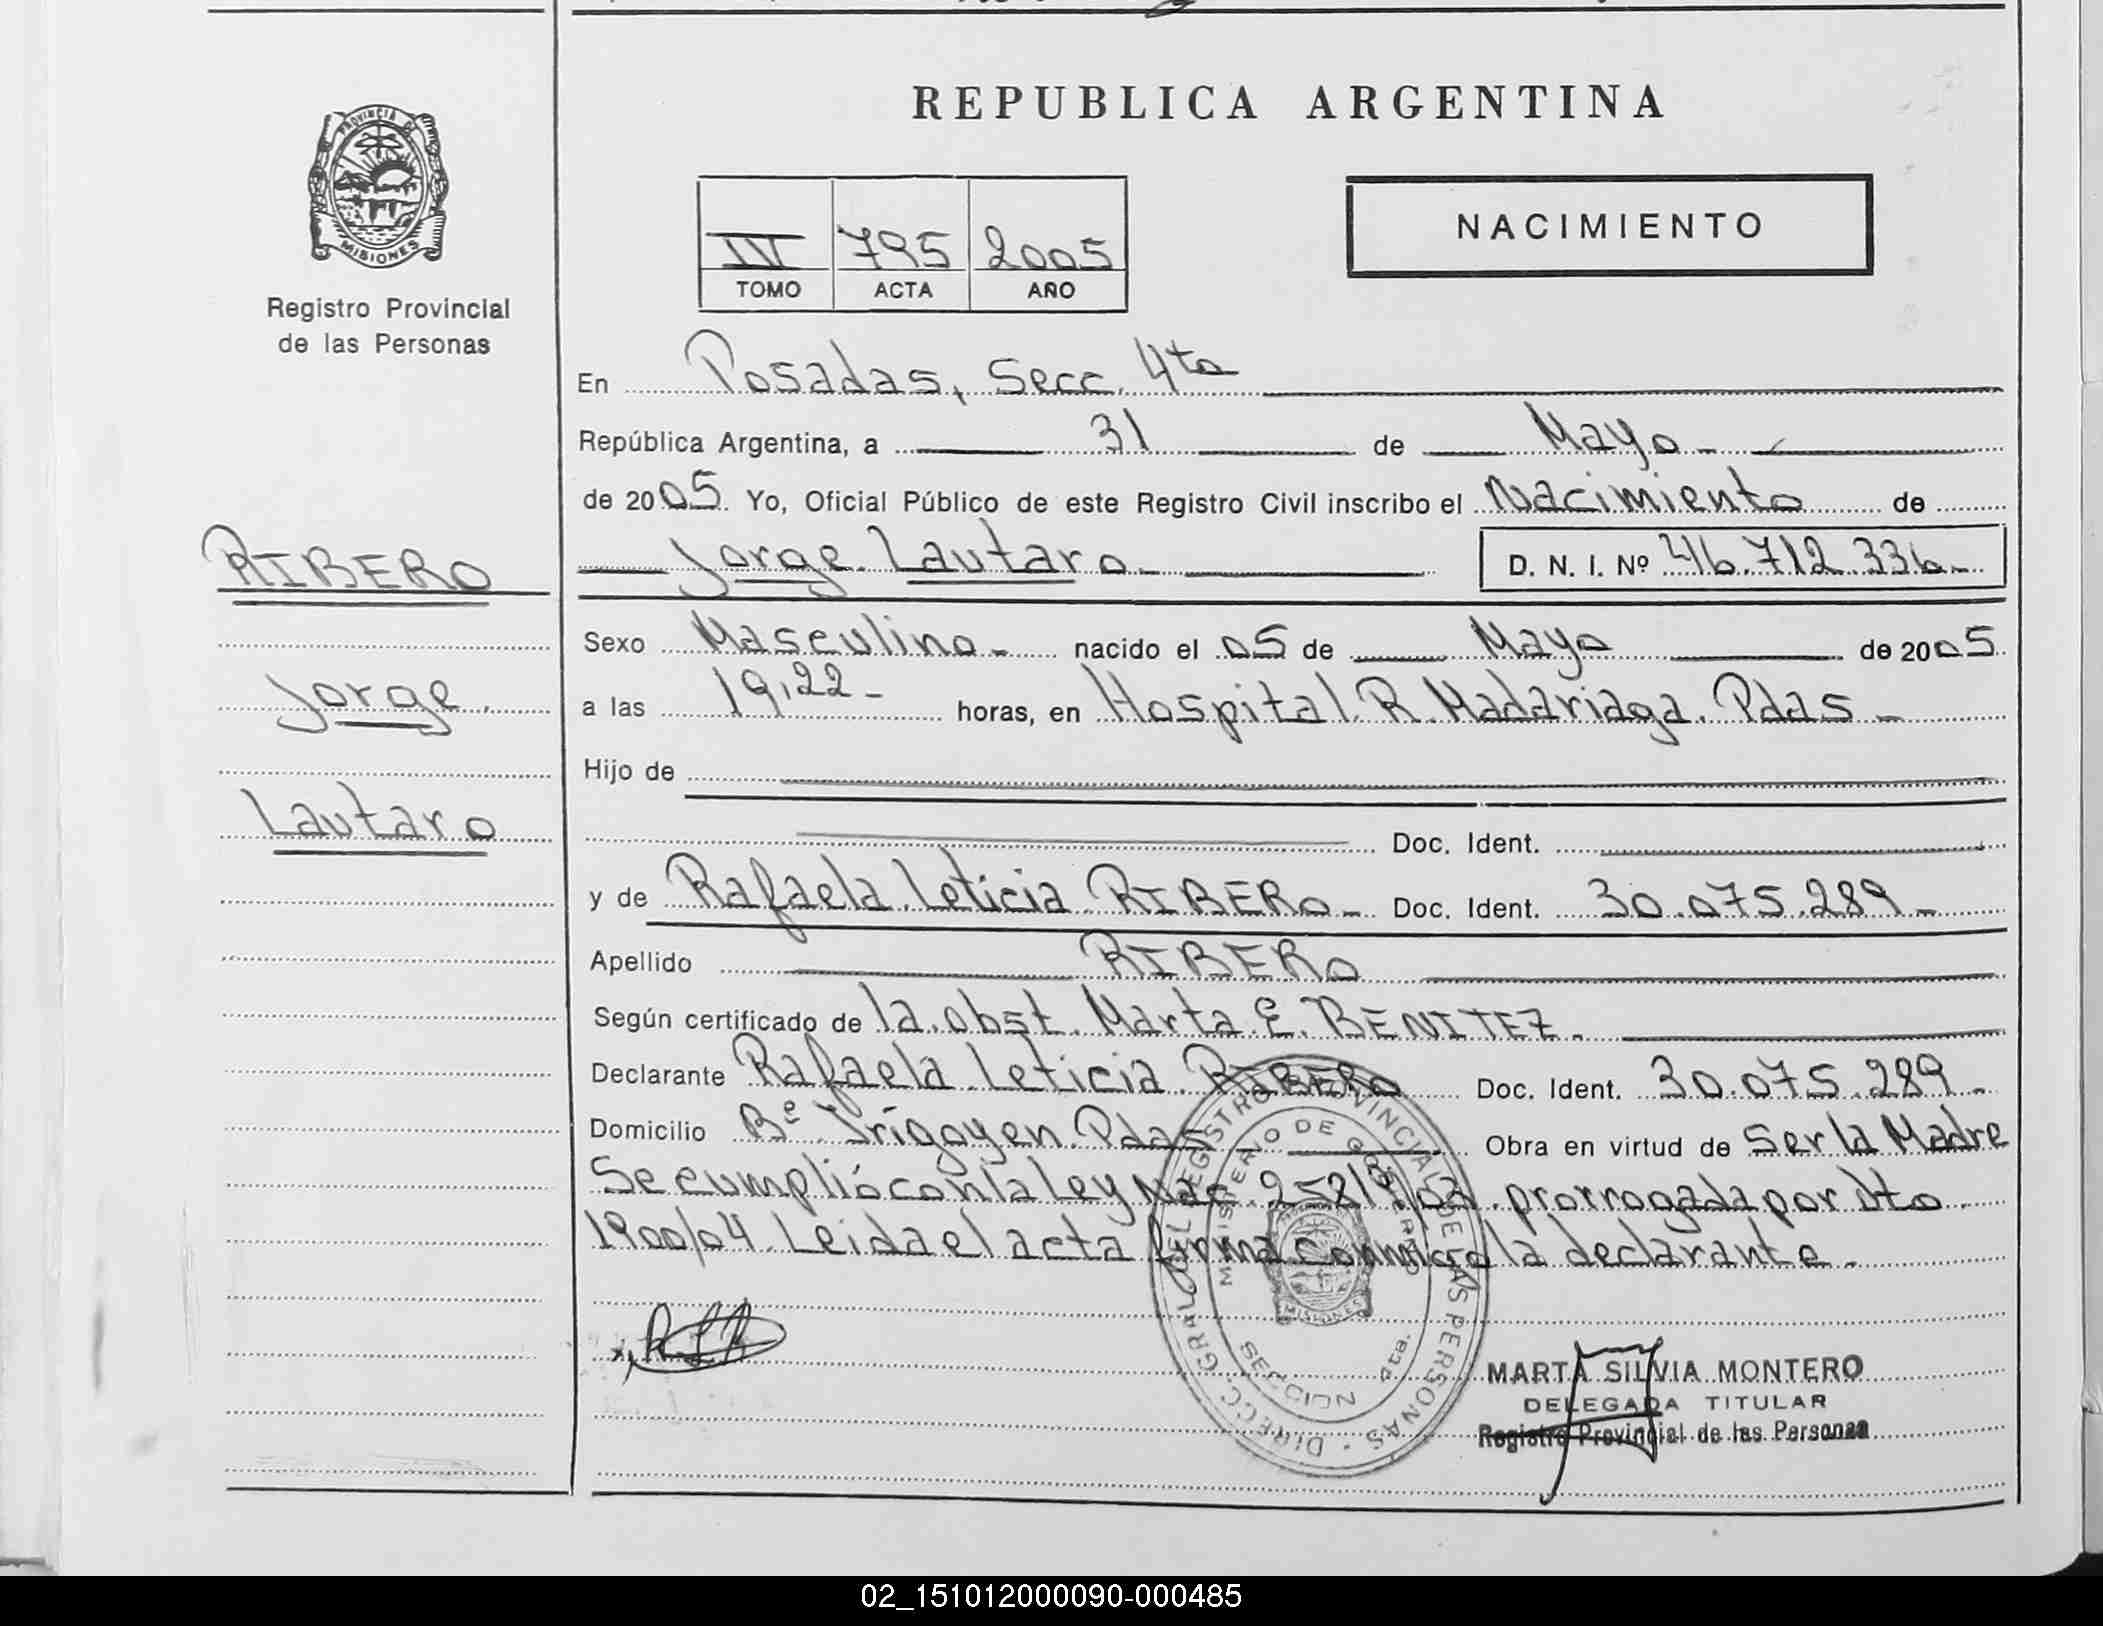 REPUBLICA ARGENTINA
PROVINCIA DE
MISIONES
Registro Provincial
de las Personas
NACIMIENTO
IV 795 2005
TOMO ACTA AÑO
En Posadas, Secc. 4ta
República Argentina, a 31 de Mayo
de 2005 Yo, Oficial Público de este Registro Civil inscribo el Nacimiento de
Jorge Lautaro D. N. I. Nº 46.712.336
RIBERO
Jorge
Lautaro
Sexo Masculino nacido el 05 de Mayo de 2005
a las 19,22 horas, en Hospital R. Madariaga. Pdas
Hijo de
Doc. Ident.
y de Rafaela Leticia RIBERO Doc. Ident. 30.075.289
Apellido RIBERO
Según certificado de la obst. Marta E. BENITEZ
Declarante Rafaela Leticia RIBERO Doc. Ident. 30.075.289
Domicilio Bº Irigoyen Pdas Obra en virtud de Ser la Madre
Se cumplió con la Ley Nac. 25819/03, prorrogada por Dto
1900/04. Leida el acta firma conmigo la declarante.
DIRECC. GRAL. DEL REGISTRO PROVINCIAL DE LAS PERSONAS
MINISTERIO DE GOBIERNO
MISIONES
SECCION 4ta.
MARTA SILVIA MONTERO
DELEGADA TITULAR
Registro Provincial de las Personas
02_151012000090-000485